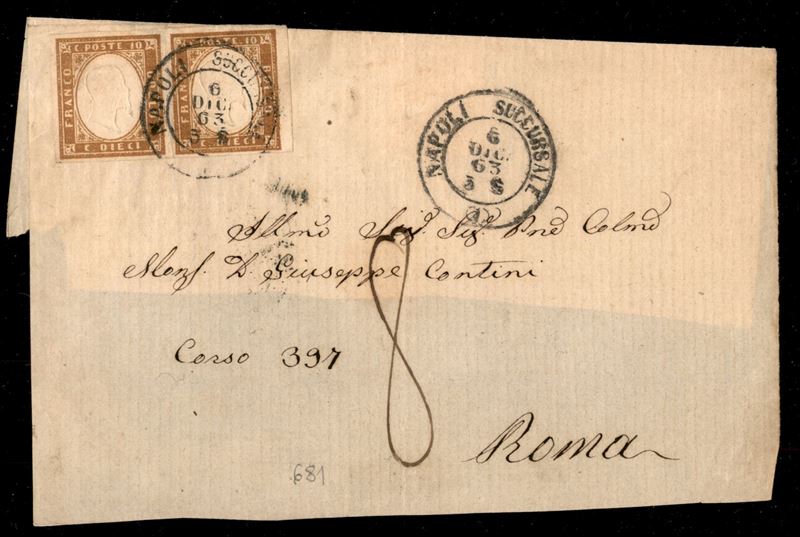 C. POSTE 10
FRANCO
C. DIECI
POSTE 10
C. DIECI
NAPOLI SUCCURSALE
6
DIC.
63
3 S
NAPOLI SUCCURSALE
6
DIC.
63
3 S
Illmo Sig. Sig. Pne Colmo
Monsʳ. D. Giuseppe Contini
Corso 397
8
Roma
681